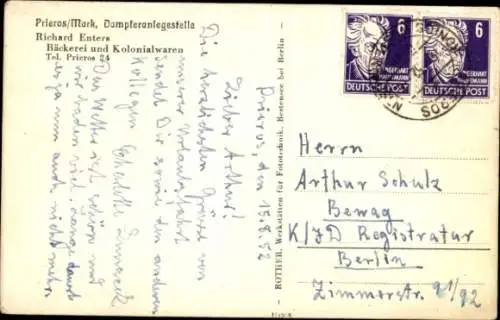 Prieros/Mark, Dampferanlegestelle
Richard Enters
Bäckerei und Kolonialwaren
Tel. Prieros 24
Prieros, den 15.8.52
Lieber Arthur!
Die herzlichsten Grüsse von
unserer Urlaubsfahrt
sendet Dir sowie den anderen
Kollegen
Das Wetter ist schön und
wir baden viel. Lange dauert
es ja nun auch nicht mehr.
ROTHER, Werkstätten für Fototechnik, Bestensee bei Berlin
6
GERHART
HAUPTMANN
DEUTSCHE POST
6
GERHART
HAUPTMANN
DEUTSCHE POST
Herrn
Arthur Schulz
Bewag
K/JD Registratur
Berlin
Zimmerstr. 91/92